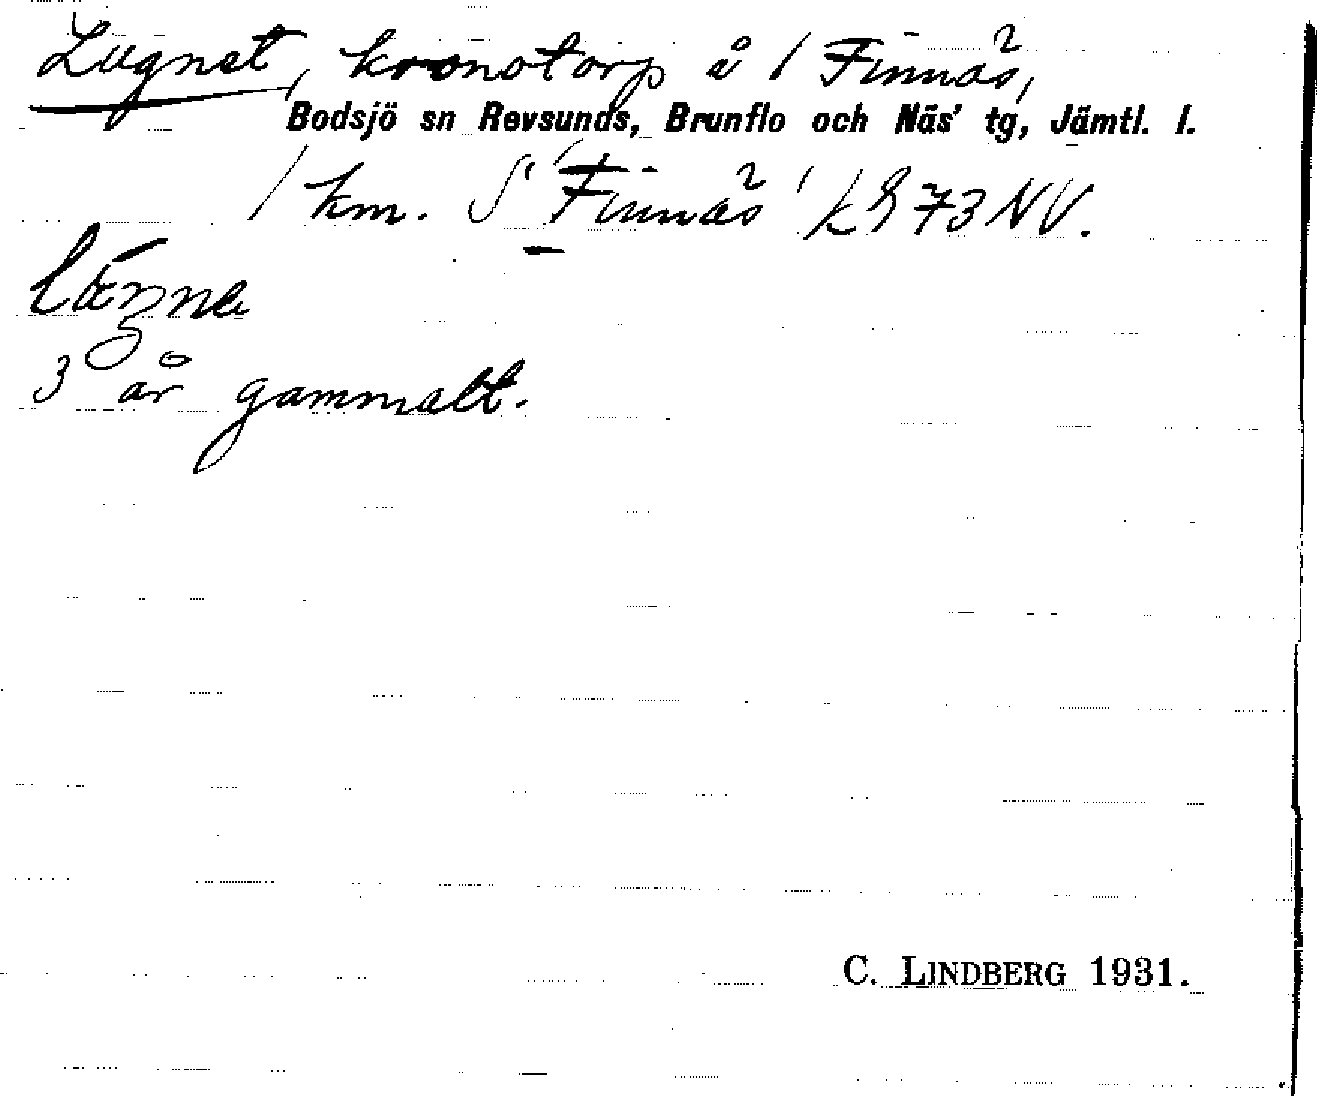 Lugnet, kronotorp å 1 Finnäs,
Bodsjö sn Revsunds, Brunflo och Näs' tg, Jämtl. l.
1 km. S "Finnäs" 73 NV.
3 år gammalt.
C. LINDBERG 1931.